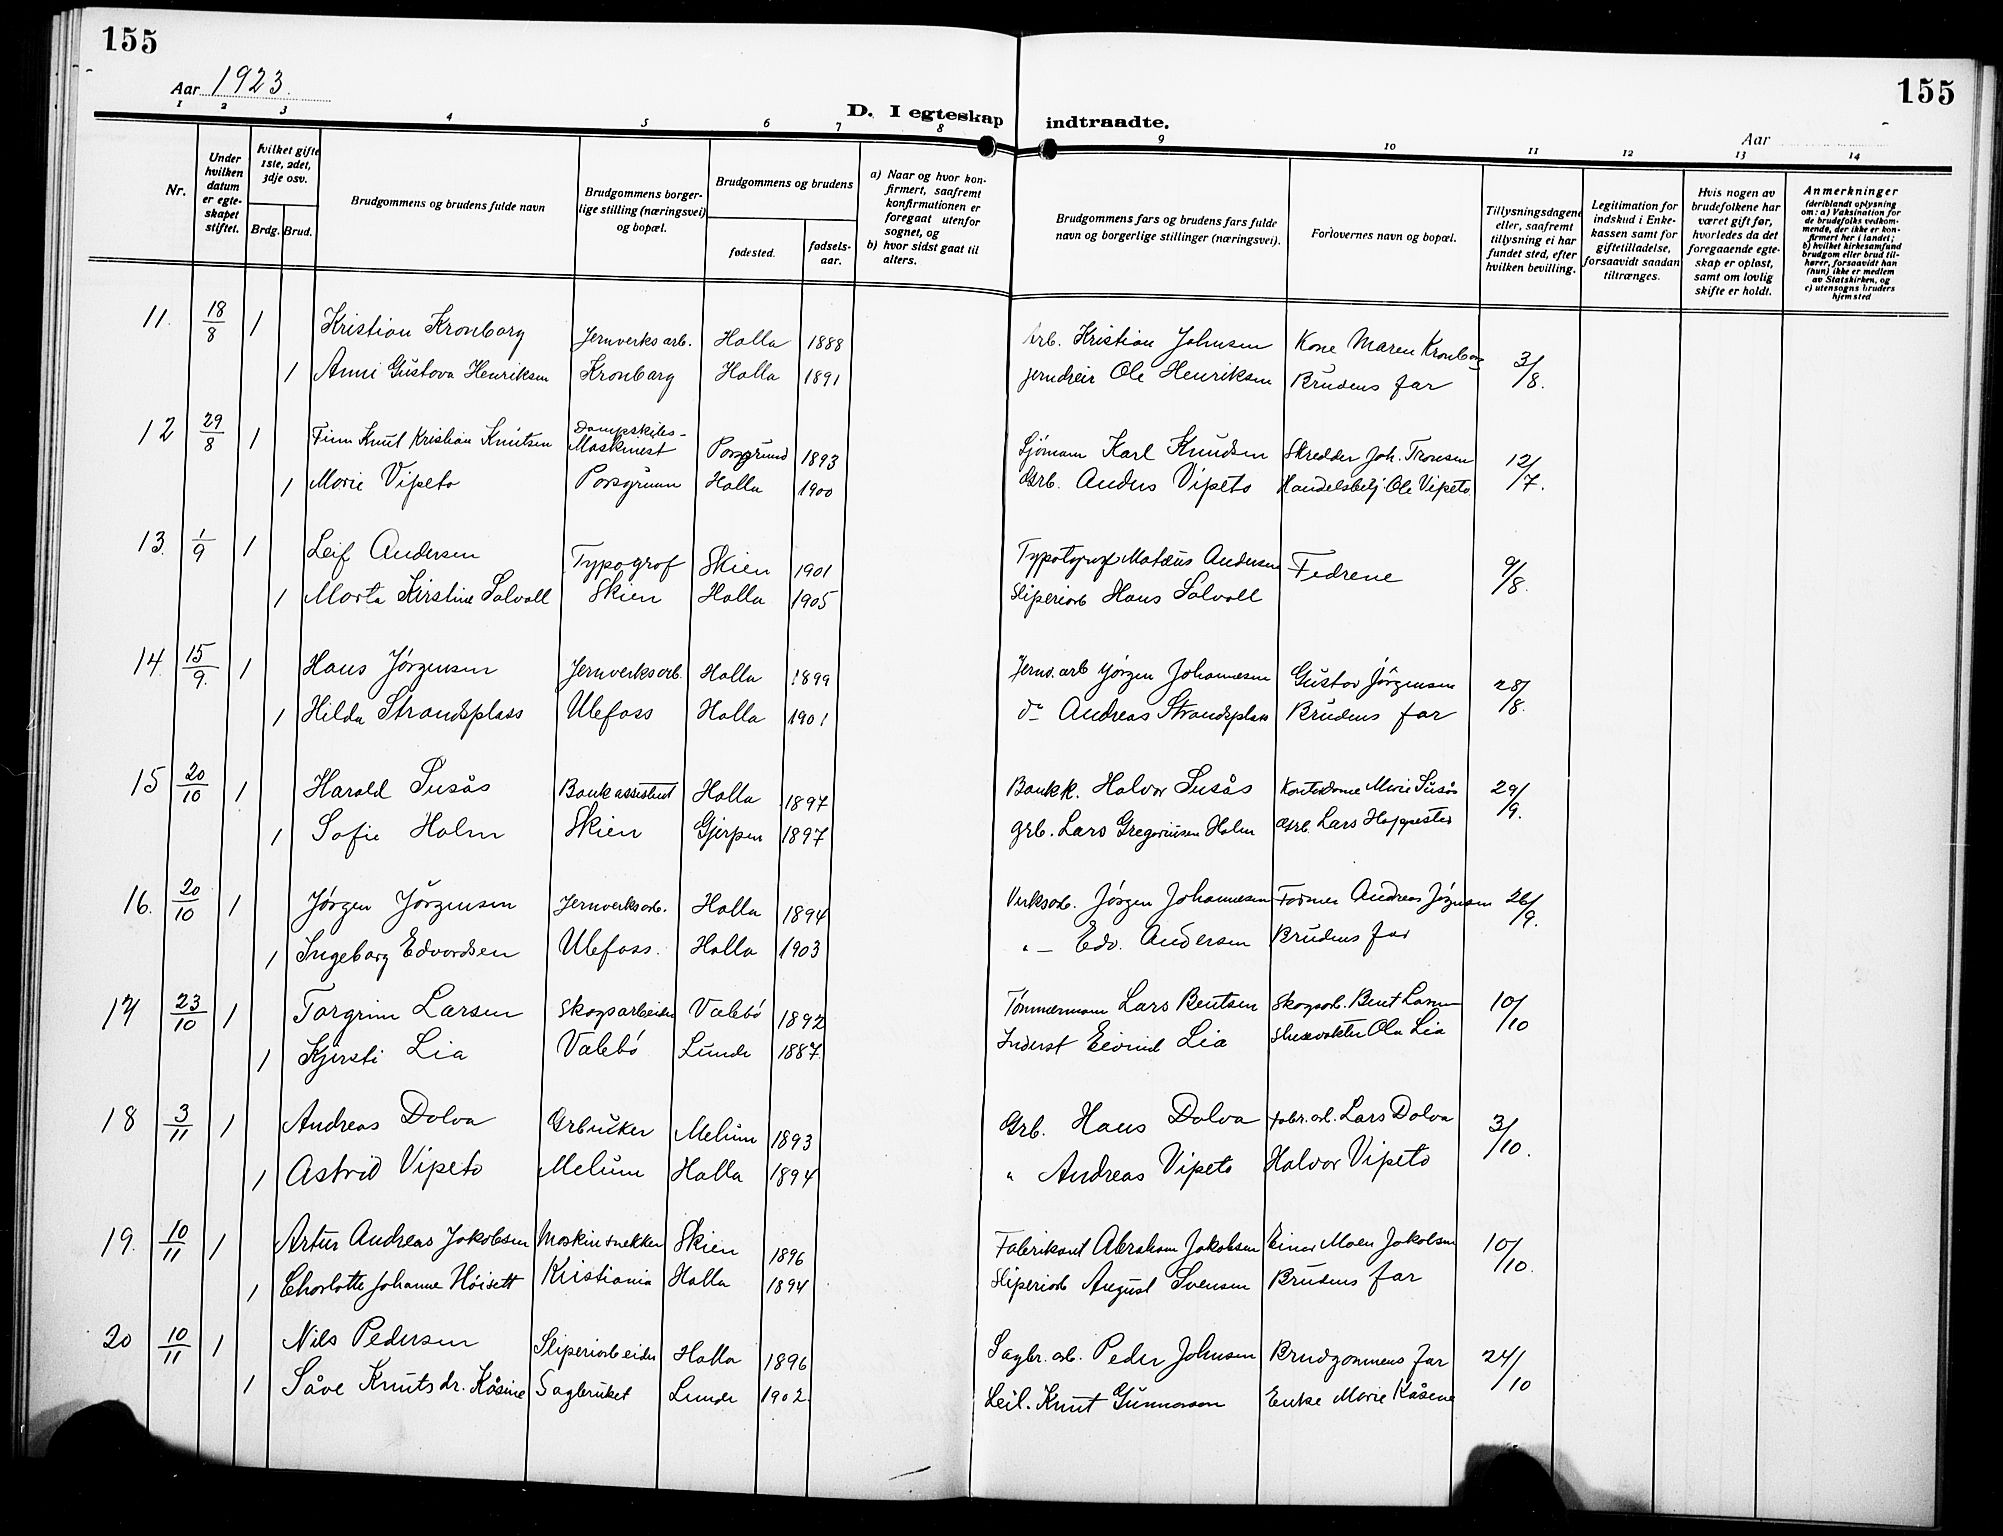 155
155
Aar 1923.
Aar
D. I egteskap indtraadte.
1 2 3 4 5 6 7 8 9 10 11 12 13 14
Nr.
Under hvilken datum er egteskapet stiftet.
Hvilket gifte 1ste, 2det, 3dje osv.
Brdg. Brud.
Brudgommens og brudens fulde navn
Brudgommens borgerlige stilling (næringsvei) og bopæl.
Brudgommens og brudens
fødested.
fødselsaar.
a) Naar og hvor konfirmert, saafremt konfirmationen er foregaat utenfor sognet, og
b) hvor sidst gaat til alters.
Brudgommens fars og brudens fars fulde navn og borgerlige stillinger (næringsvei).
Forlovernes navn og bopæl.
Tillysningsdagene eller, saafremt tillysning ei har fundet sted, efter hvilken bevilling.
Legitimation for indskud i Enkekassen samt for giftetilladelse, forsaavidt saadan tiltrænges.
Hvis nogen av brudefolkene har været gift før, hvorledes da det foregaaende egteskap er opløst, samt om lovlig skifte er holdt.
Anmerkninger
(deriblandt oplysning om: a) Vaksination for de brudefolks vedkommende, der ikke er konfirmert her i landet; b) hvilket kirkesamfund brudgom eller brud tilhører, forsaavidt han (hun) ikke er medlem av Statskirken, og c) utensogns bruders hjemsted
11. 18/8 1 Kristian Kronborg Jernverksarb. Holla 1888 Arb. Kristian Johnsen Kone Maren Kronborg 3/8.
1 Anni Gustava Henriksen Kronborg Holla 1891 jerndreir Ole Henriksen Brudens far
12 29/8 1 Finn Knut Kristian Knutsen Dampskibs-Maskinest Porsgrund 1893 Sjømann Karl Knudsen Skredder Joh. Tronsen 12/7.
1 Marie Vipeto Porsgrunn Holla 1900 Grb. Anders Vipeto Handelsbetj. Ole Vipeto
13. 1/9 1 Leif Andersen Typograf Skien 1901 Typotograf Mateus Andersen Fedrene 9/8.
1 Marta Kirstine Solvoll Skien Holla 1905 Sliperiarb Hans Solvoll
14. 15/9. 1 Hans Jørgensen Jernverksarb. Holla 1899 Jernv. arb Jørgen Johannesen Gustav Jörgensen 28/8.
1 Hilda Strandsplass Ulefoss Holla 1901 do Andreas Strandsplass Brudens far
15 20/10 1 Harald Susås Bankassistent Holla 1897 Bankk. Halvor Susås Kontordame Marie Susås 29/9.
1 Sofie Holm Skien Gjerpen 1897 grb. Lars Gregoriusen Holm Grb. Lars Hoppestad
16. 20/10 1 Jørgen Jörgensen Jernverksarb. Holla 1894 Verksarb. Jørgen Johannesen Former Andreas Jørgensen 26/9.
1 Ingeborg Edvardsen Ulefoss. Holla 1903 " — Edv. Andersen Brudens far
17 23/10 1 Torgrim Larsen Skogsarbeider Valebø 1892 Tømmermann Lars Bentsen Skogsarb. Bent Larsen 10/10
1 Kjersti Lia Valebö Lunde 1887. Inderst Eivind Lia Slusevokter Ola Lia
18 3/11 1 Andreas Dolva Grbruker Melum 1893 Grb. Hans Dolva Fabr. arb. Lars Dolva 3/10.
1 Astrid Vipeto Melum Holla 1894 " Andreas Vipeto Halvor Vipeto
19. 10/11 1 Artur Andreas Jakobsen Moskinsnekker Skien 1896 Fabrikant Abraham Jakobsen Einar Moen Jakobsen 10/10.
1 Charlotte Johanne Høisett Kristiania Holla 1894 Sliperiarb August Svensen Brudens far
20 10/11 1 Nils Pedersen Sliperiarbeider Holla 1896 Sagbr. arb. Peder Johnsen Brudgommens far 24/10
1 Såve Knutsdr. Kåsine Sagbruket Lunde 1902. Leil. Knut Gunnarson Enke Marie Kåsene